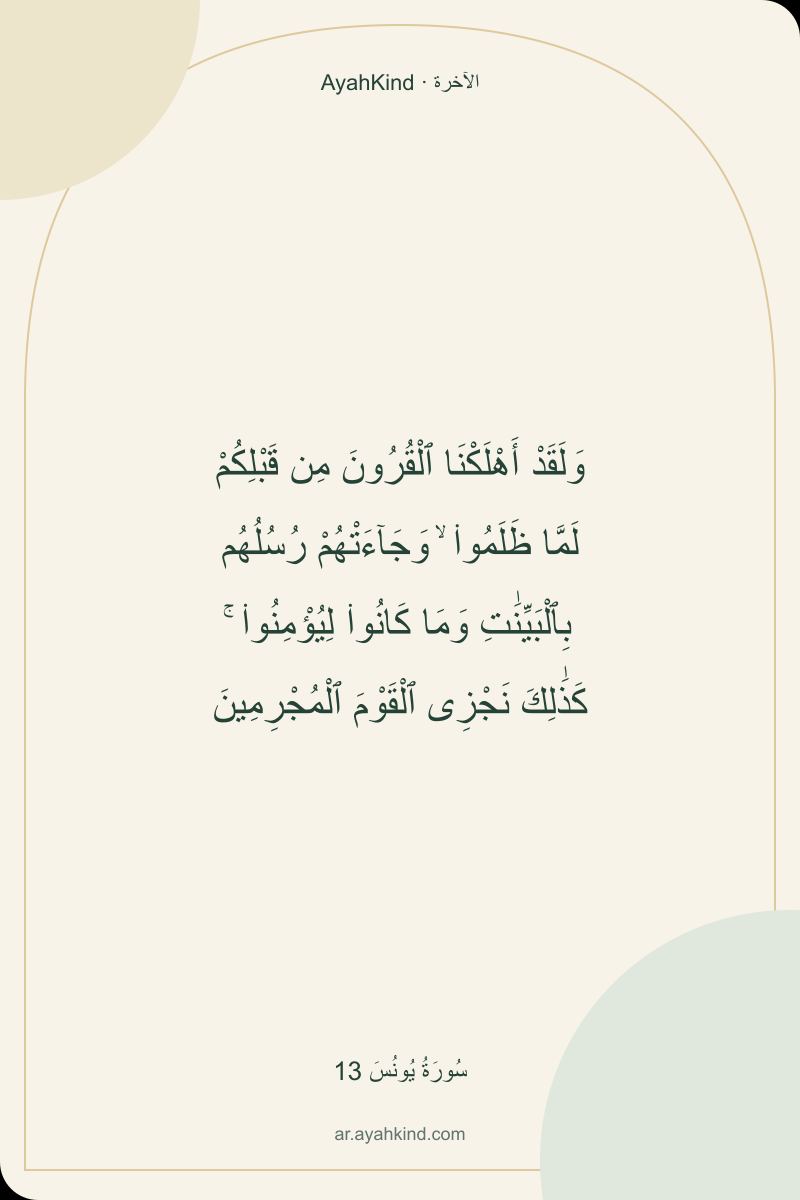 AyahKind · الآخرة
وَلَقَدْ أَهْلَكْنَا ٱلْقُرُونَ مِن قَبْلِكُمْ
لَمَّا ظَلَمُوا۟ ۙ وَجَآءَتْهُمْ رُسُلُهُم
بِٱلْبَيِّنَٰتِ وَمَا كَانُوا۟ لِيُؤْمِنُوا۟ ۚ
كَذَٰلِكَ نَجْزِى ٱلْقَوْمَ ٱلْمُجْرِمِينَ
سُورَةُ يُونُسَ 13
ar.ayahkind.com